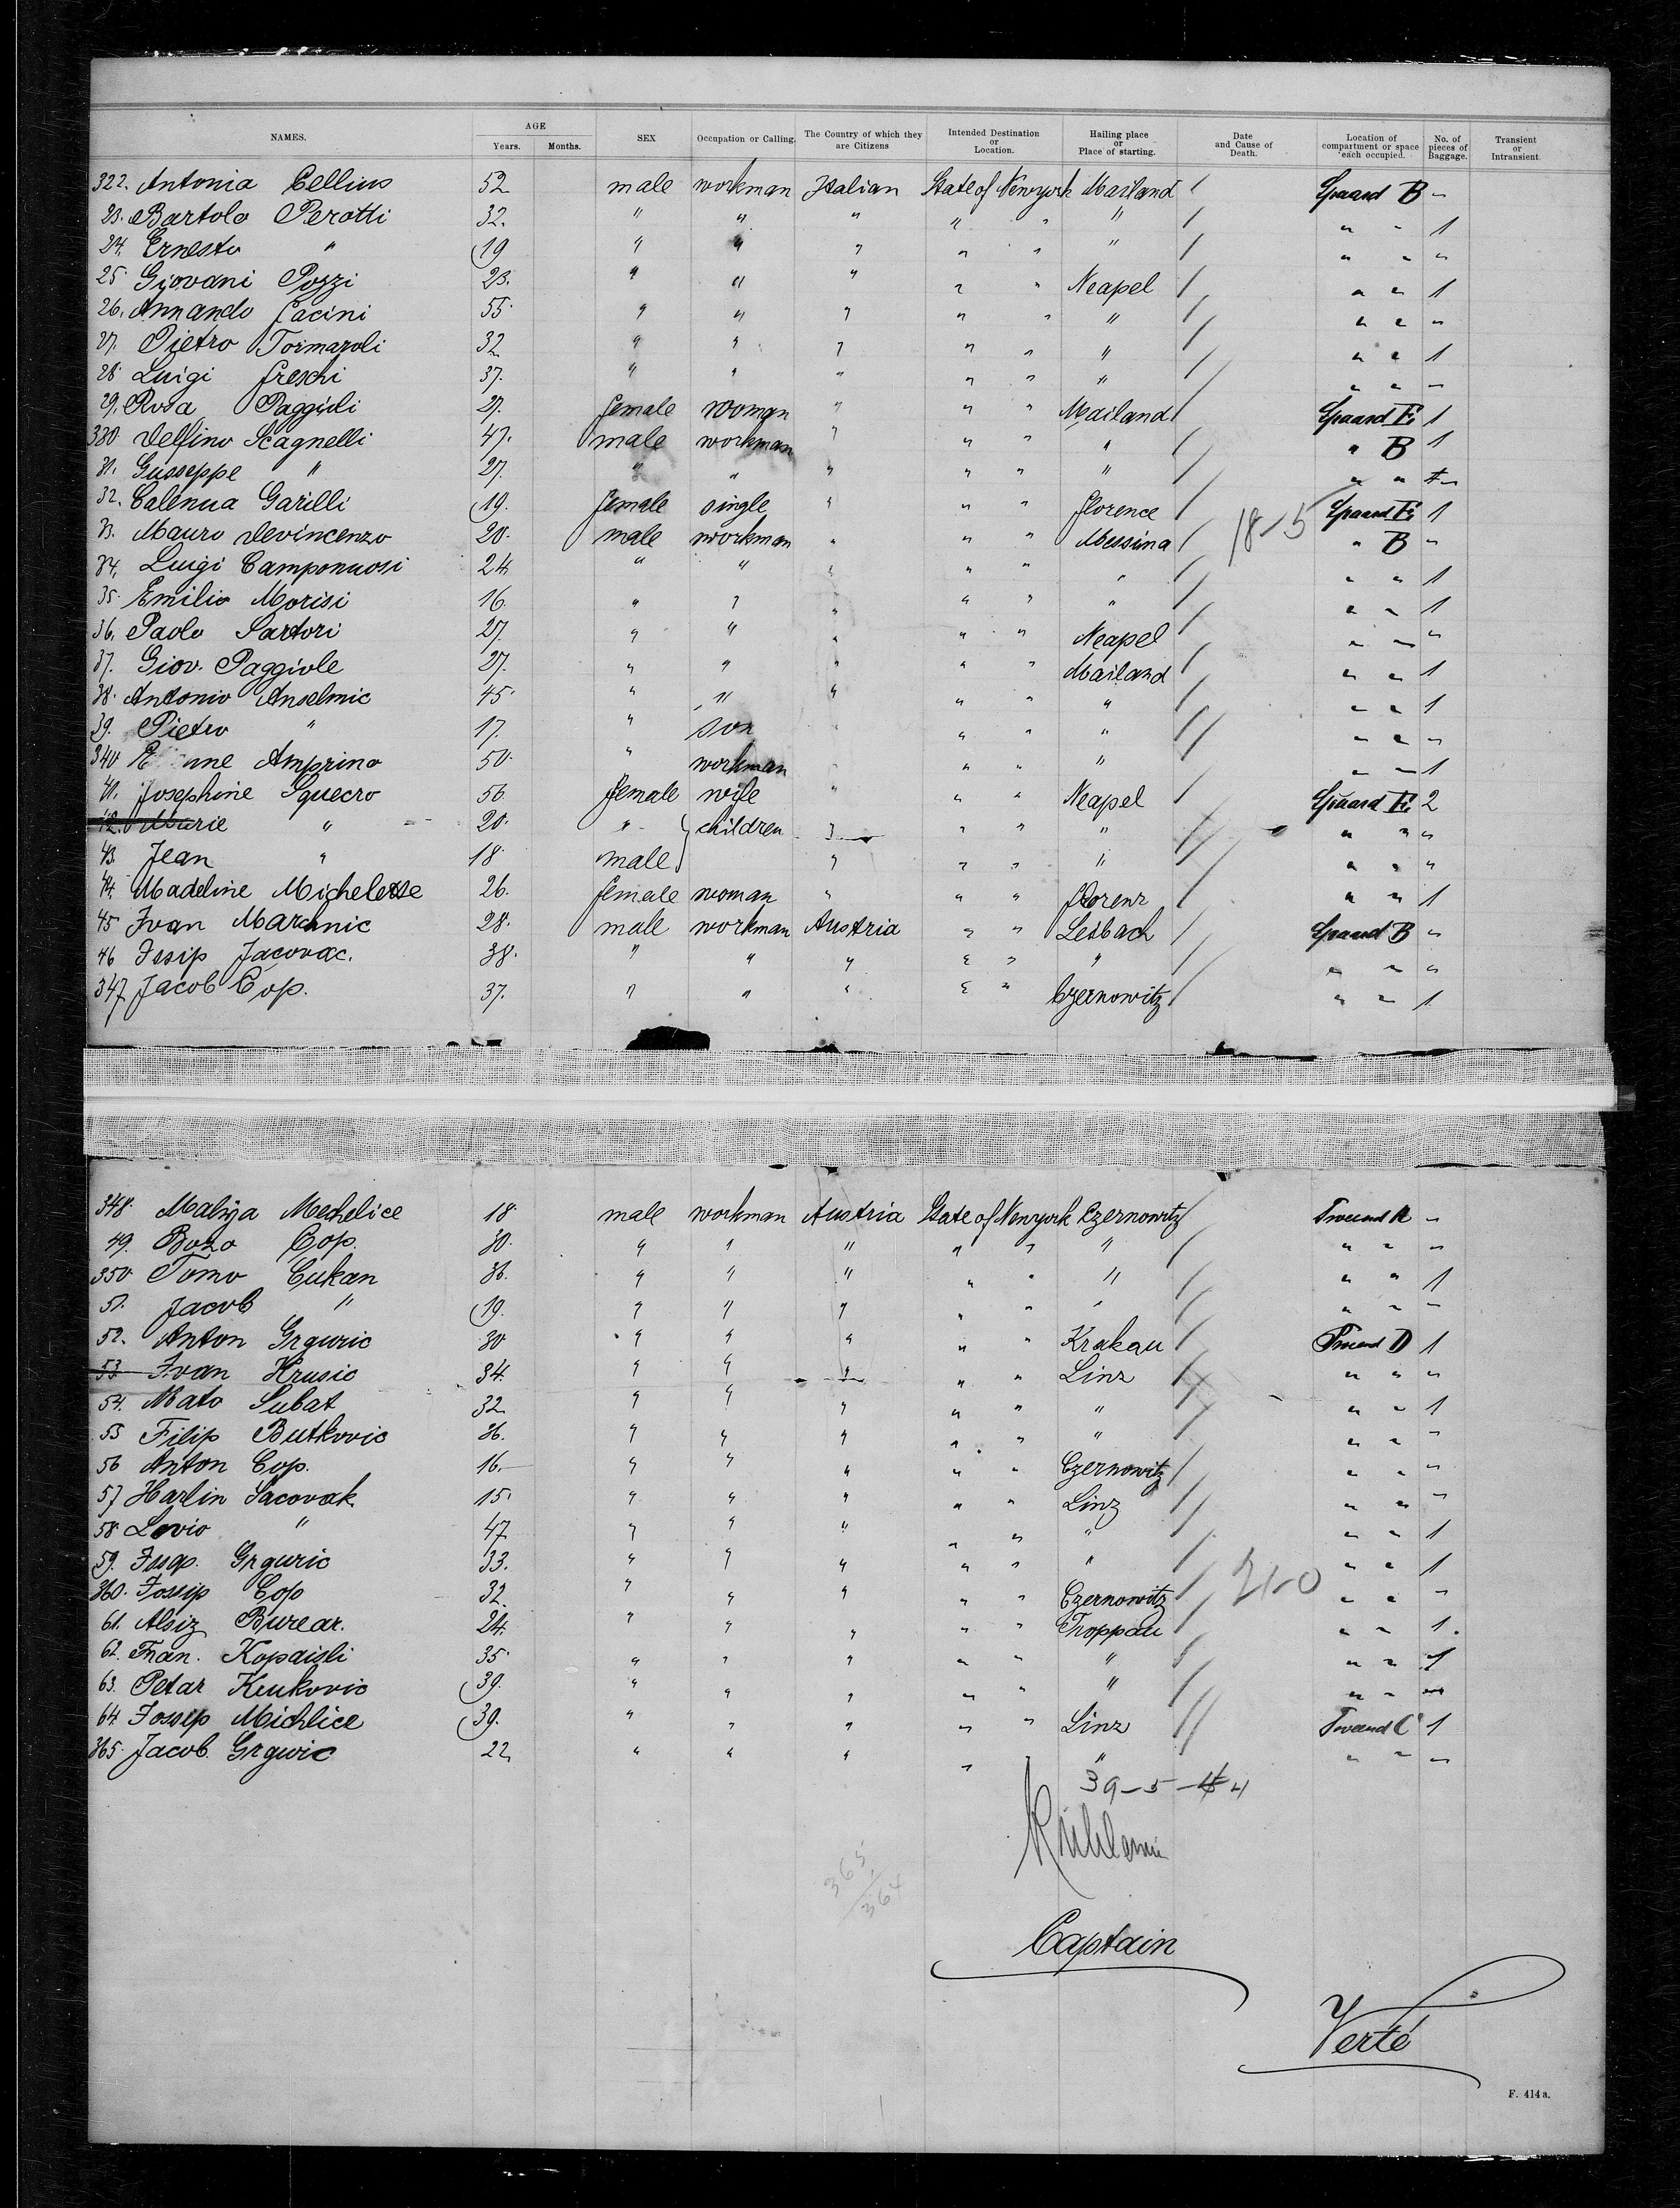 NAMES. AGE Years. Months. SEX Occupation or Calling. The Country of which they are Citizens Intended Destination or Location. Hailing place or Place of starting. Date and Cause of Death. Location of compartment or space each occupied. No. of pieces of Baggage. Transient or Intransient.
322. Antonia Cellius 52 male workman Italian State of Newyork Mailand / B "
23. Bartolo Perotti 32. " " " " " " / " " 1
24. Ernesto " 19 " " " " " " / " " "
25. Giovani Pozzi 23. " " " " " Neapel / " " 1
26. Annando Cacini 55. " " " " " " / " " "
27. Pietro Tormazoli 32 " " " " " " / " " 1
28. Luigi Freschi 37. " " " " " " / " " "
29. Rosa Paggioli 27. female woman " " " Mailand / E. 1
330. Delfino Scagnelli 47. male workman " " " " / " B 1
31. Gusseppe " 27. " " " " " " / " "
32. Calenua Garilli 19. female single " " " Florence / E. 1
33. Mauro Devincenzo 20. male workman " " " Messina / 18-5 " B "
34. Luigi Camponuosi 24 " " " " " " / " " 1
35. Emilio Morisi 16. " " " " " " / " " 1
36. Paolo Sartori 27. " " " " " Neapel / " " "
37. Giov. Paggiole 27. " " " " " Mailand / " " 1
38. Antonio Anselmic 45. " " " " " " / " " 1
39. Pietro " 17. " son " " " " // " " "
340 Amprino 50. " workman " " " " / " " 1
41. Josephine Squecro 56. female wife " " " Neapel / E. 2
42. Marie " 20. " children " " " " // " " "
43. Jean " 18. male " " " " // " " "
44. Madeline Michelesse 26. female woman " " " Florenz / " " 1
45 Ivan Marinic 28. male workman Austria " " Leibach / B "
46 Issip Jacovac. 38. " " " " " " / " " "
347. Jacob Cop. 37. " " " " " Czernowitz / " " 1
348. Malija Mechelice 18. male workman Austria State of Newyork Czernowitz / Tweend A "
49. Bozo Cop. 30. " " " " " " / " " "
350 Tomo Cukan 36. " " " " " " / " " 1
51. Jacob " 19. " " " " " " / " " "
52. Anton Grguric 30 " " " " " Krakau / D 1
53. Ivan Hrusic 34. " " " " " Linz // " " "
54. Mato Subat 32 " " " " " " / " " 1
55 Filip Butkovic 36. " " " " " " / " " "
56 Anton Cop. 16. " " " " " Czernowitz / " " "
57 Harlin Sacovak 15. " " " " " Linz / " " "
58 Lovio " 47 " " " " " " / " " 1
59. Issp. Grguric 33. " " " " " " / " " 1
360. Fossip Cop 32. " " " " " Czernowitz / 21-0 " " "
61. Alsiz Burear. 24. " " " " " Troppau / " " 1.
62. Fran. Kopaisli 35. " " " " " " / " " 1
63. Petar Krukovic 39. " " " " " " / " " "
64. Jossip Michlice 39. " " " " " Linz // Tweend C 1
365. Jacob Grguric 22 " " " " " / " " "
39-5-
365
364
Captain
Verté
F. 414 a.